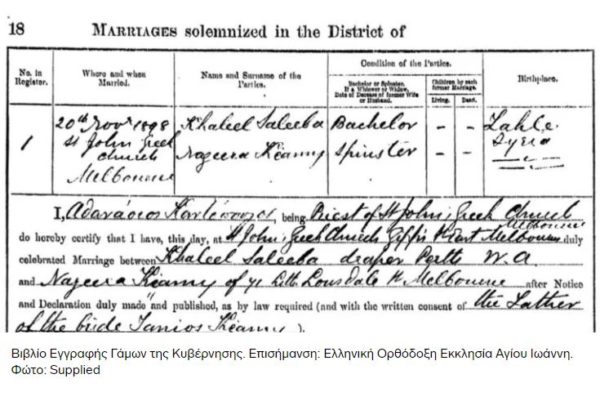 18 MARRIAGES solemnized in the District of
No. in Register.
Where and when Married.
Name and Surname of the Parties.
Condition of the Parties.
Bachelor or Spinster. If a Widower or Widow, Date of Decease of former Wife or Husband.
Children by each former Marriage.
Living.
Dead.
Birthplace.
1
20th Novr 1898
St John Greek
Church
Melbourne
Khaleel Saleeba Bachelor - - Zahle
Nageera Kearny Spinster - - Syria
I, being Priest of St John, Greek Church
Melbourne
do hereby certify that I have, this day, at St John, Greek Church East Melbourne duly
celebrated Marriage between Khaleel Saleeba draper Perth W.A
and Nageera Kearny of 71 Little Lonsdale St Melbourne after Notice
and Declaration duly made and published, as by law required (and with the written consent of the Father
of the bride Tanios Kearny ).
Βιβλίο Εγγραφής Γάμων της Κυβέρνησης. Επισήμανση: Ελληνική Ορθόδοξη Εκκλησία Αγίου Ιωάννη.
Φώτο: Supplied